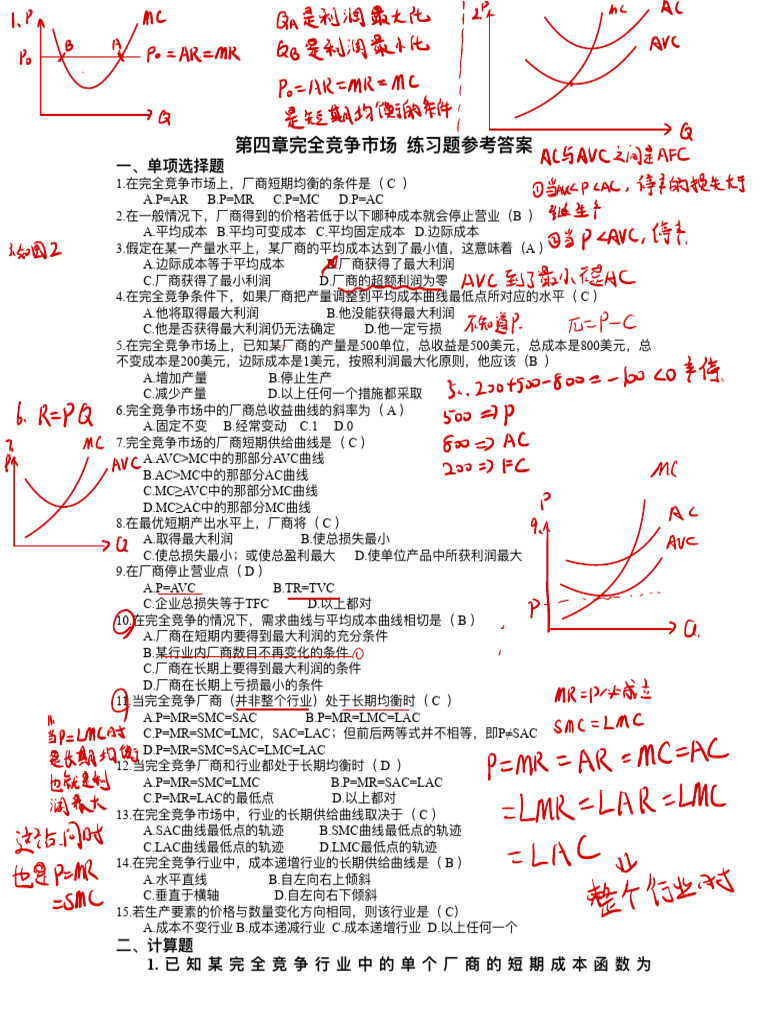 1、P
MC
B
A
P₀
P₀=AR=MR
Q
QA是利润最大化
QB是利润最小化
P₀=AR=MR=MC
是短期均衡的条件
2.P
MC
AC
AVC
Q
第四章完全竞争市场 练习题参考答案
一、单项选择题
1.在完全竞争市场上，厂商短期均衡的条件是（ C ）
A.P=AR B.P=MR C.P=MC D.P=AC
2.在一般情况下，厂商得到的价格若低于以下哪种成本就会停止营业（B ）
A.平均成本 B.平均可变成本 C.平均固定成本 D.边际成本
3.假定在某一产量水平上，某厂商的平均成本达到了最小值，这意味着（A ）
A.边际成本等于平均成本 B.厂商获得了最大利润
C.厂商获得了最小利润 D.厂商的超额利润为零
4.在完全竞争条件下，如果厂商把产量调整到平均成本曲线最低点所对应的水平（ C ）
A.他将取得最大利润 B.他没能获得最大利润
C.他是否获得最大利润仍无法确定 D.他一定亏损
5.在完全竞争市场上，已知某厂商的产量是500单位，总收益是500美元，总成本是800美元，总
不变成本是200美元，边际成本是1美元，按照利润最大化原则，他应该（B ）
A.增加产量 B.停止生产
C.减少产量 D.以上任何一个措施都采取
6.完全竞争市场中的厂商总收益曲线的斜率为（ A ）
A.固定不变 B.经常变动 C.1 D.0
7.完全竞争市场的厂商短期供给曲线是（ C ）
A.AVC>MC中的那部分AVC曲线
B.AC>MC中的那部分AC曲线
C.MC≥AVC中的那部分MC曲线
D.MC≥AC中的那部分MC曲线
8.在最优短期产出水平上，厂商将（ C ）
A.取得最大利润 B.使总损失最小
C.使总损失最小；或使总盈利最大 D.使单位产品中所获利润最大
9.在厂商停止营业点（ D ）
A.P=AVC B.TR=TVC
C.企业总损失等于TFC D.以上都对
10.在完全竞争的情况下，需求曲线与平均成本曲线相切是（ B ）
A.厂商在短期内要得到最大利润的充分条件
B.某行业内厂商数目不再变化的条件
C.厂商在长期上要得到最大利润的条件
D.厂商在长期上亏损最小的条件
11.当完全竞争厂商（并非整个行业）处于长期均衡时（ C ）
A.P=MR=SMC=SAC B.P=MR=LMC=LAC
C.P=MR=SMC=LMC，SAC=LAC；但前后两等式并不相等，即P≠SAC
D.P=MR=SMC=SAC=LMC=LAC
12.当完全竞争厂商和行业都处于长期均衡时（ D ）
A.P=MR=SMC=LMC B.P=MR=SAC=LAC
C.P=MR=LAC的最低点 D.以上都对
13.在完全竞争市场中，行业的长期供给曲线取决于（ C ）
A.SAC曲线最低点的轨迹 B.SMC曲线最低点的轨迹
C.LAC曲线最低点的轨迹 D.LMC最低点的轨迹
14.在完全竞争行业中，成本递增行业的长期供给曲线是（ B ）
A.水平直线 B.自左向右上倾斜
C.垂直于横轴 D.自左向右下倾斜
15.若生产要素的价格与数量变化方向相同，则该行业是（ C）
A.成本不变行业 B.成本递减行业 C.成本递增行业 D.以上任何一个
二、计算题
1. 已知某完全竞争行业中的单个厂商的短期成本函数为
AC与AVC之间是AFC
①当AVC<P<AC，停产的损失大于
继续生产
②当P<AVC，停产
如图2
AVC到了最小不是AC
不知道P.
π=P-C
5、200+500-800=-100<0
500⇒P
800⇒AC
200⇒FC
6、R=PQ
7.
P
MC
AVC
Q
MC
P
9.
AC
AVC
P
Q
11.
当P=LMC时
是长期均衡
也就是利
润最大
这古同时
也是P=MR
=SMC
MR=P
SMC=LMC
P=MR=AR=MC=AC
=LMR=LAR=LMC
=LAC
整个行业时